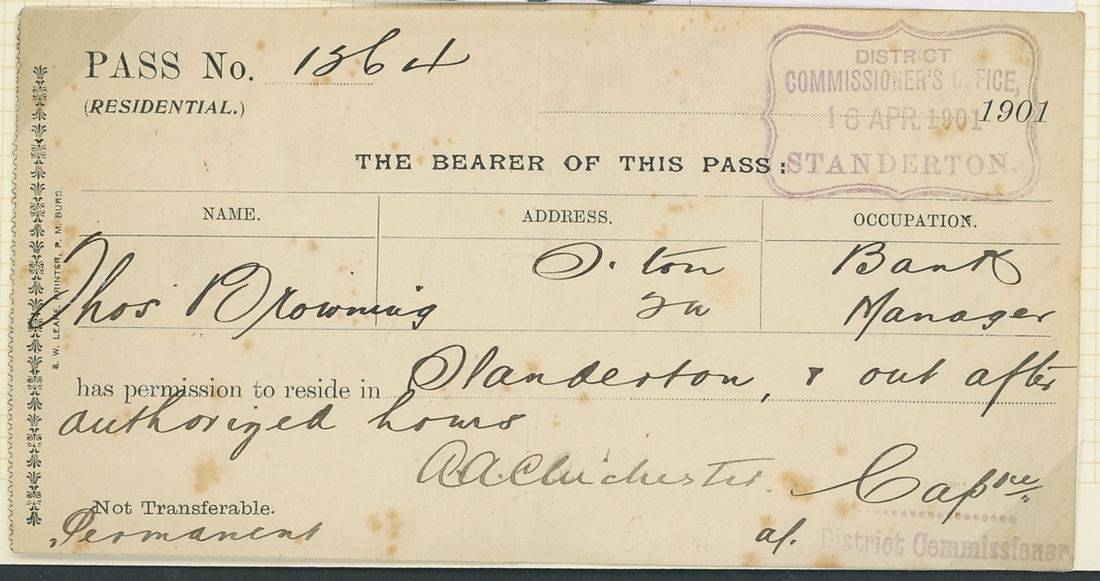 PASS No. 1364
(RESIDENTIAL.)
DISTRICT
COMMISSIONER'S OFFICE,
18 APR. 1901
STANDERTON.
1901
THE BEARER OF THIS PASS:
NAME. ADDRESS. OCCUPATION.
Thos Browning
S. ton
Bank
Manager
has permission to reside in Standerton, & out after
authorized hours
A.A. Chichester. Cap
Not Transferable.
Permanent
District Commissioner
S. W. LEAKE, PRINTER, P. M. BURG.